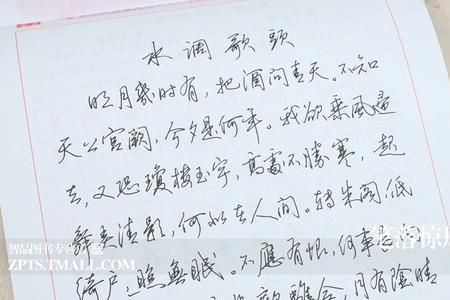 水调歌头
明月几时有,把酒问青天。不知
天上宫阙,今夕是何年。我欲乘风归
去,又恐瓊楼玉宇,高處不勝寒,起
舞弄清影,何似在人间。转朱阁,低
绮户,照無眠。不應有恨,何事
離合,月有陰晴
智品图书专营店
ZPTS.TMALL.COM
笔落惊风